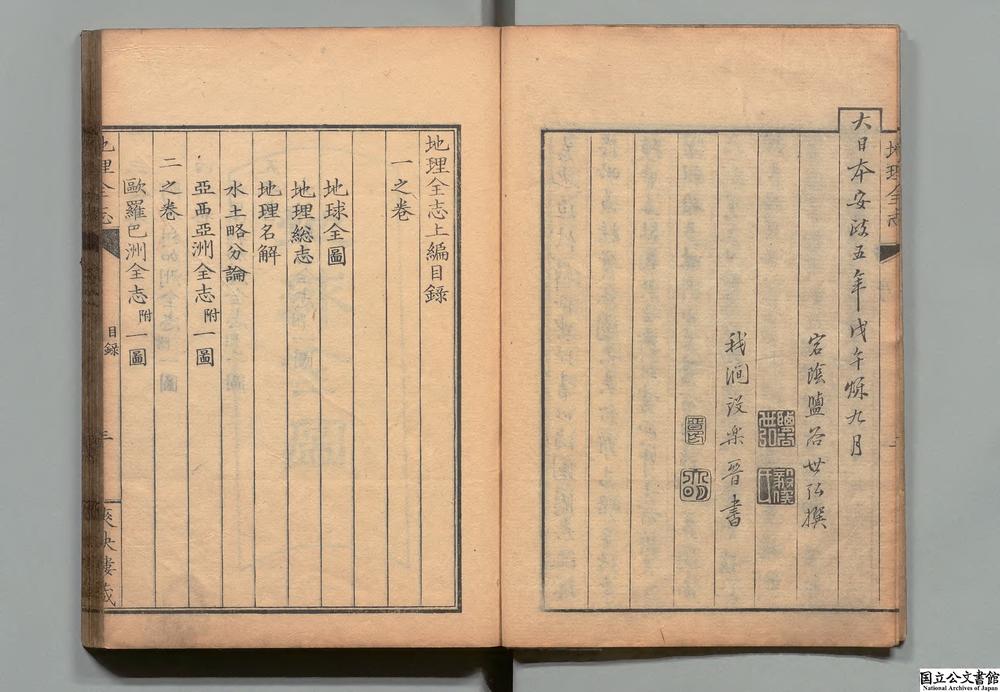 大日本安政五年戊午烁九月
宕陰鹽谷世弘撰
我澗設楽晋書
地理全志
地理全志上編目錄
一之卷
地球全圖
地理総志
地理名解
水土略分論
亞西亞洲全志附一圖
二之卷
歐羅巴洲全志附一圖
地理全志
目錄
爽快樓蔵
国立公文書館
National Archives of Japan